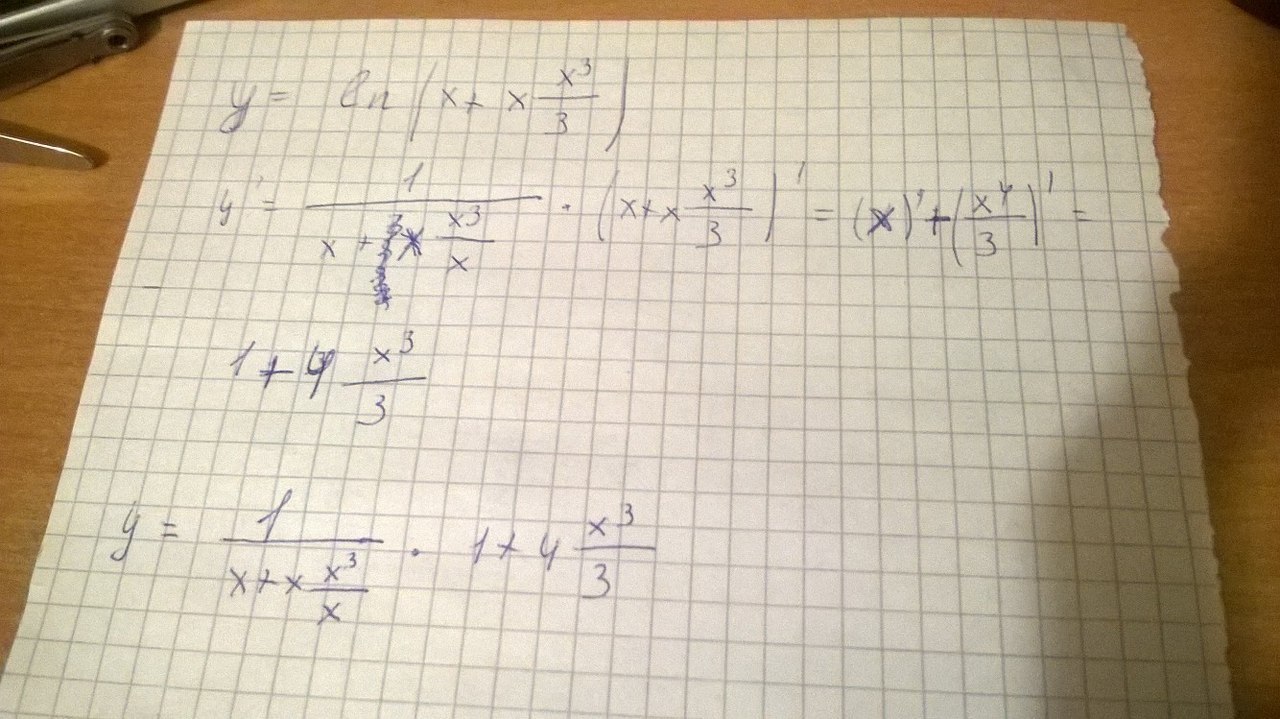 y = ln (x + x x³/3)
y' = 1/(x + x x³/x) · (x + x x³/3)' = (x)' + (x⁴/3)' =
1 + 4 x³/3
y = 1/(x + x x³/x) · 1 + 4 x³/3